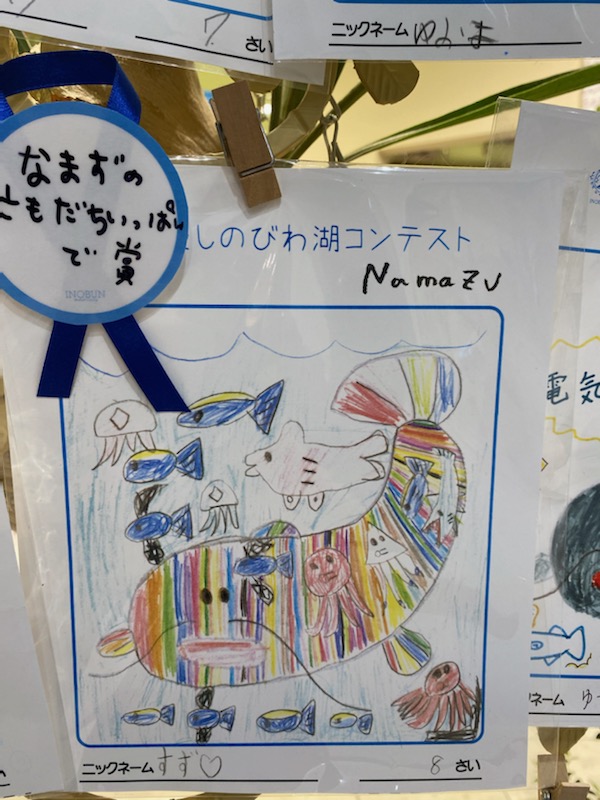 7 さい
ニックネーム ゆいま
なまずの
ともだちいっぱい
で賞
INOBUN
しのびわ湖コンテスト
Namazu
電気
ニックネーム すず♡
8 さい
ックネーム ゆ